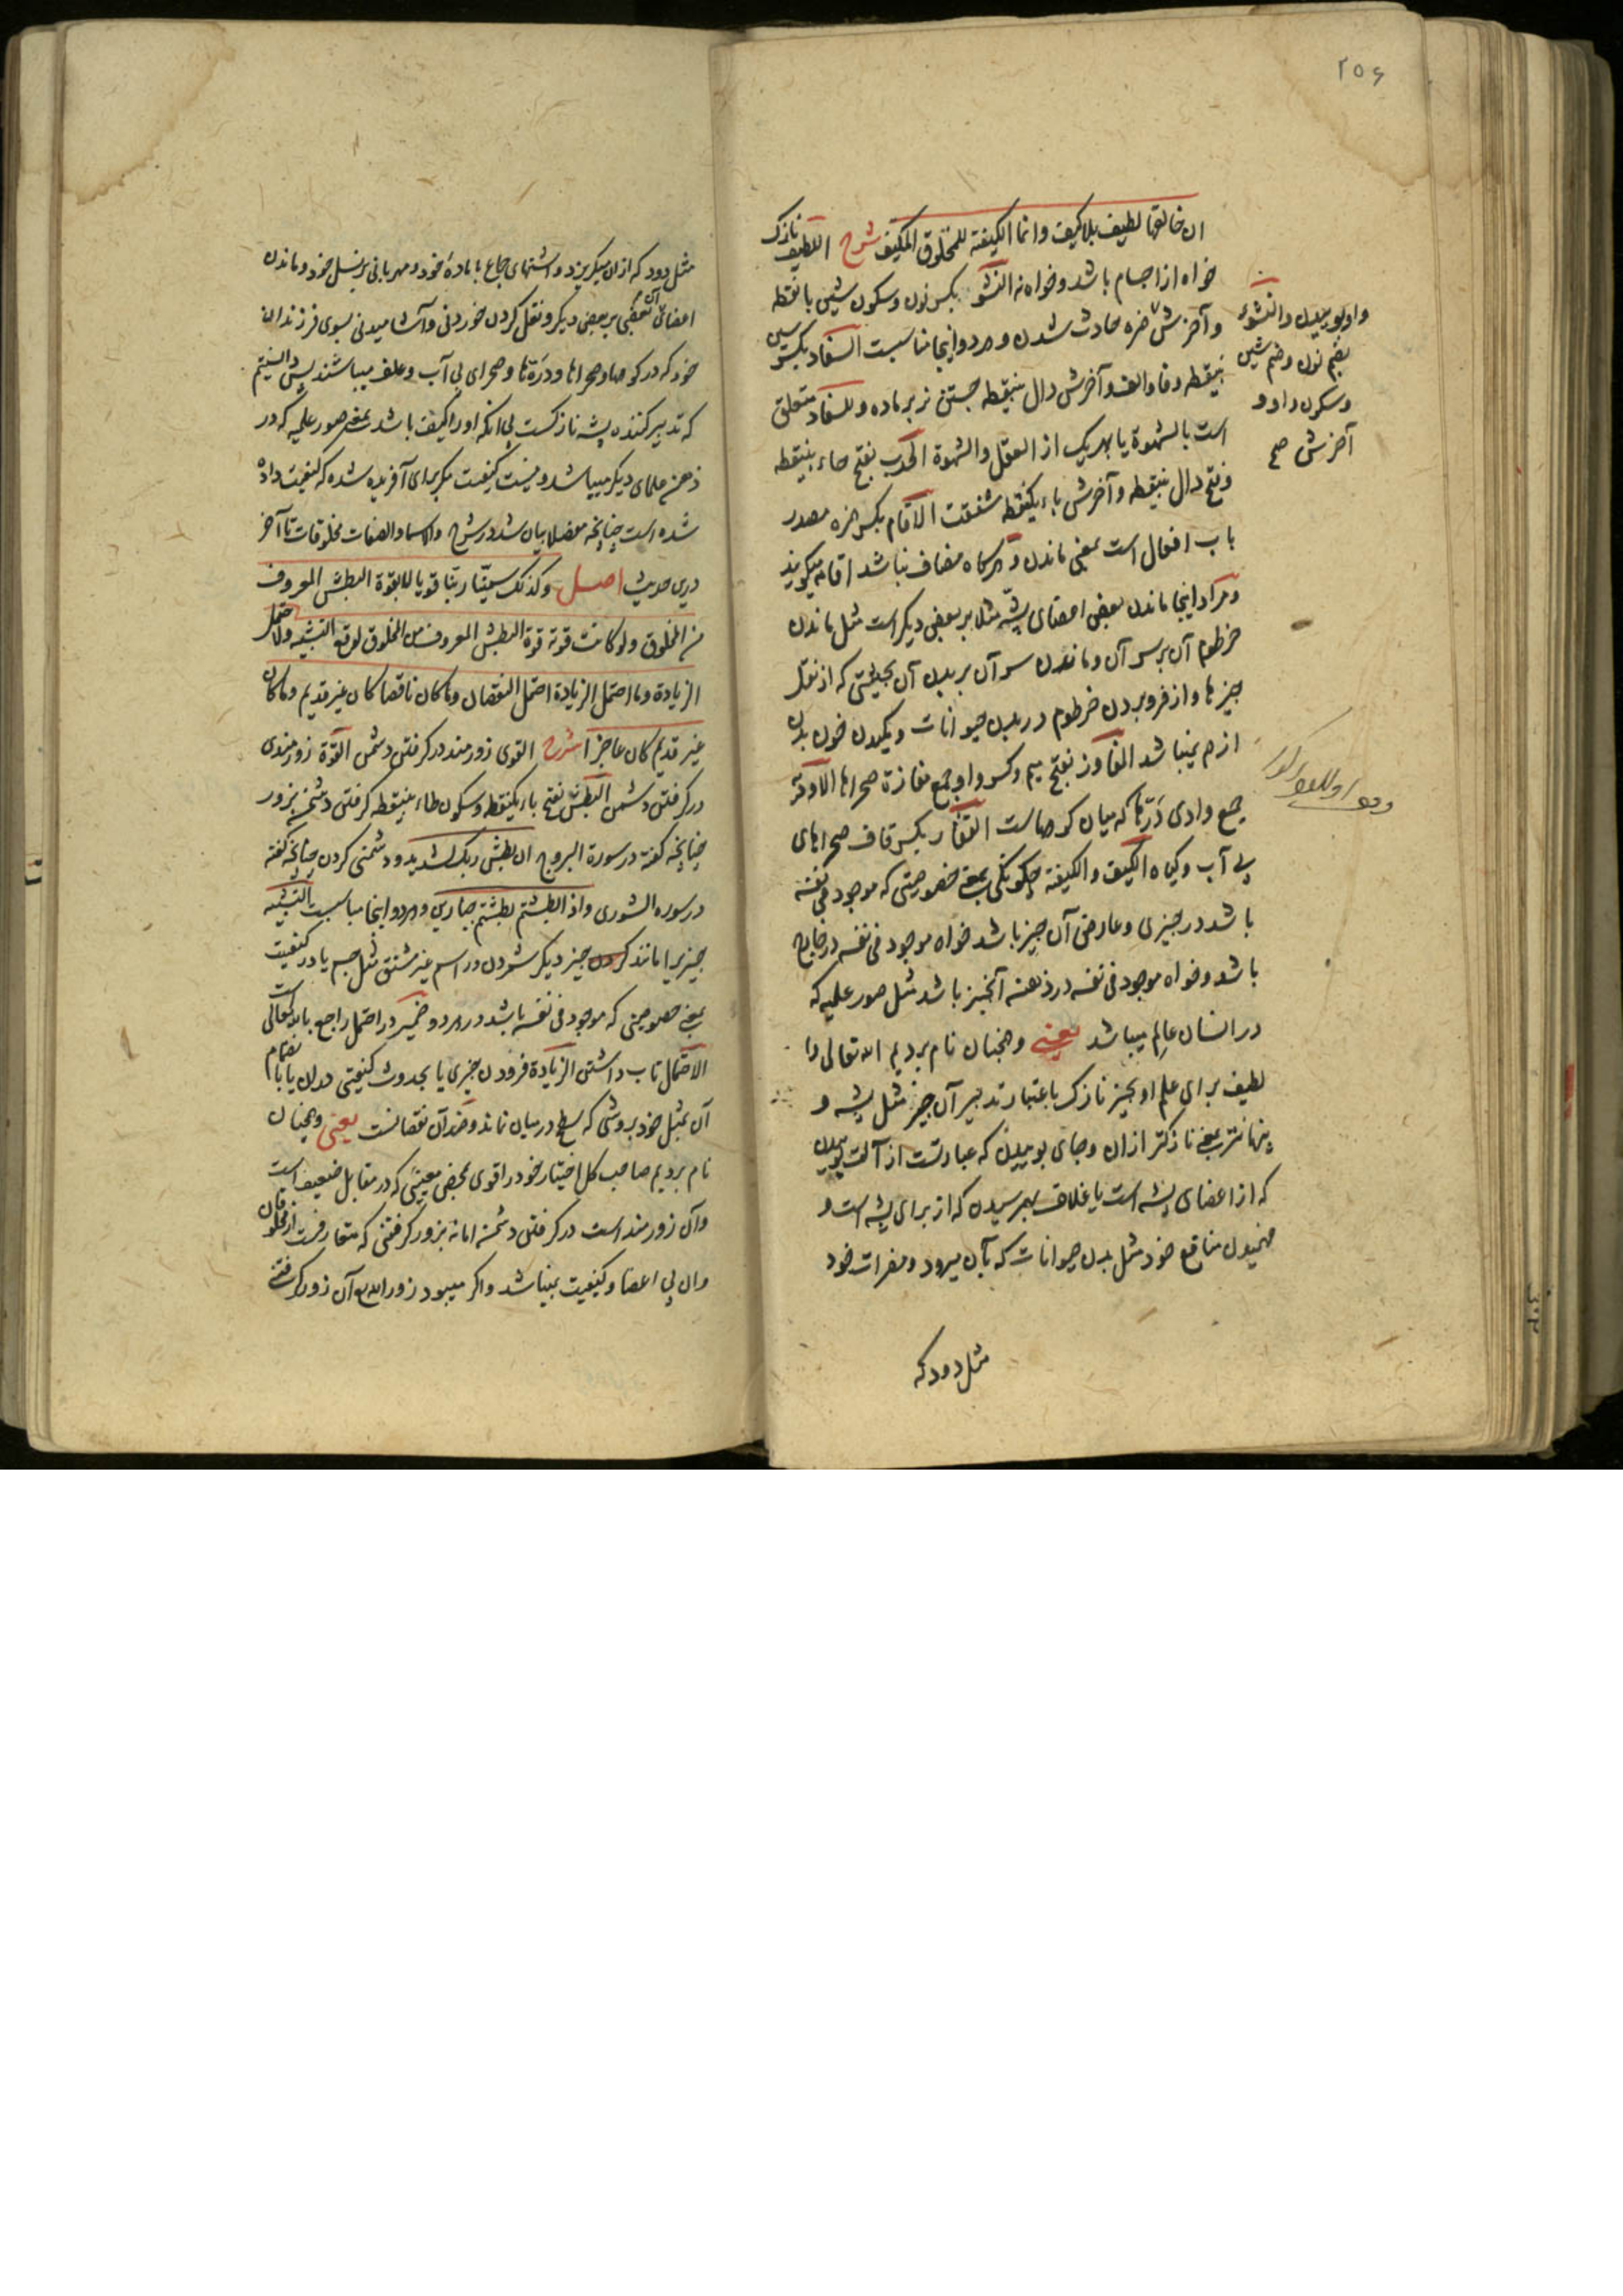 ۲۵۶
ان خالقها لطیف بلا کیف وانما الکیفیة للمخلوق المکیف شرح اللطیف نازک
خواه از اجسام باشد و خواه نه النشو بکسر نون و سکون شین با نقطه
و آخرش همزه حادث شدن و هر دو اینجا مناسبست السفاد بکسر سین
بینقطه و فا و الف و آخرش دال بینقطه جستن نر بر ماده و للسفاد متعلق
است بالشهوة یا بهر یک از العقل والشهوة الحدب بفتح حاء بینقطه
و فتح دال بینقطه و آخرش باء یکنقطه شفقت الاقام بکسر همزه مصدر
باب افعال است بمعنی ماندن و هرگاه مضاف نباشد اقامه میگویند
و مراد اینجا ماندن بعض اعضای پشه مثلا بر بعض دیگر است مثل ماندن
خرطوم آن بر سر آن و ماندن سر آن بر بدن آن بحیثیتی که از نقل
چیزها و از فرو بردن خرطوم در بدن حیوانات و مکیدن خون بدن
از هم نمیپاشد المفاوز بفتح میم و کسر واو جمع مفازة صحراها الاودیة
جمع وادی درّها که میان کوهاست القفار بکسر قاف صحراهای
بی آب و گیاه الکیف والکیفیة چگونگی بمعنی خصوصیتی که موجود فی نفسه
باشد در چیزی و عارض آن چیز باشد خواه موجود فی نفسه در خارج
باشد و خواه موجود فی نفسه در ذهنه آنچیز باشد مثل صور علمیه که
در انسان عالم میباشد یعنی و همچنان نام بردیم الله تعالی را
لطیف برای علم او بچیز نازک باعتبار تدبیر آن چیز مثل پشه و
پنهانتر بمعنی نازکتر از ان و جای بوییدن که عبارتست از آلت بوییدن
که از اعضای پشه است یا غلاف بهم رسیدن که از برای پشه است و
فهمیدن منافع خود مثل بدن حیوانات که بآن میرود و مضرات خود
مثل دود که
واو بوییدن والنشوء
بضم نون و ضم شین
و سکون واو و
آخرش صح
مثل دود که ازان میگریزد و اشتهای جماع با ماده خود و مهربانی بر نسل خود و ماندن
اعضای آن بعضی بر بعض دیگر و نقل کردن خوردنی و آشامیدنی بسوی فرزندان
خود که در کوهها و صحراها و درّها و صحرای بی آب و علف میباشند پس دانستیم
که تدبیر کننده پشه نازکست بی انکه او را کیف باشد بمعنی صور علمیه که در
ذهن علمای دیگر میباشد و نیست کیفیت مگر برای آفریده شده که کیفیت داده
شده است چنانچه مفصلا بیان شد در شرح والاسماء والصفات مخلوقات تا آخر
درین حدیث اصل وکذلک سمّینا ربّنا قویا لا بقوة البطش المعروف
من المخلوق ولو کانت قوته قوة البطش المعروف من المخلوق لوقع التشبیه ولاحتمل
الزیادة وما احتمل الزیادة احتمل النقصان وما کان ناقصا کان غیر قدیم وما کان
غیر قدیم کان عاجزا شرح القوی زورمند در گرفتن دشمن القوة زورمندی
در گرفتن دشمن البطش بفتح باء یکنقطه و سکون طاء بینقطه گرفتن دشمن بزور
چنانچه گفته در سورة البروج ان بطش ربک لشدید و دشمنی کردن چنانچه گفته
در سوره الشوری واذا بطشتم بطشتم جبارین و هر دو اینجا مناسبست التشبیه
چیزیرا مانند کردن چیز دیگر شمردن در اسم غیر مشتق مثل جسم یا در کیفیت
بمعنی خصوصیتی که موجود فی نفسه باشد در هر دو ضمیر در احتمل راجع بالله تعالی است
الاحتمال تاب داشتن الزیادة فزودن چیزی یا بحدوث کیفیتی در ان یا بانضمام
آن بمثل خود بروشی که سطح در میان نماند و ضد آن نقصانست یعنی و همچنان
نام بردیم صاحب کل اختیار خود را قوی بمحض معنیی که در مقابل ضعیف است
وآن زورمند است در گرفتن دشمن اما نه بزور گرفتنی که متعارفست از مخلوقان
وان بی اعضا و کیفیت نمیباشد و اگر میبود زور الله آن زور گرفتنی